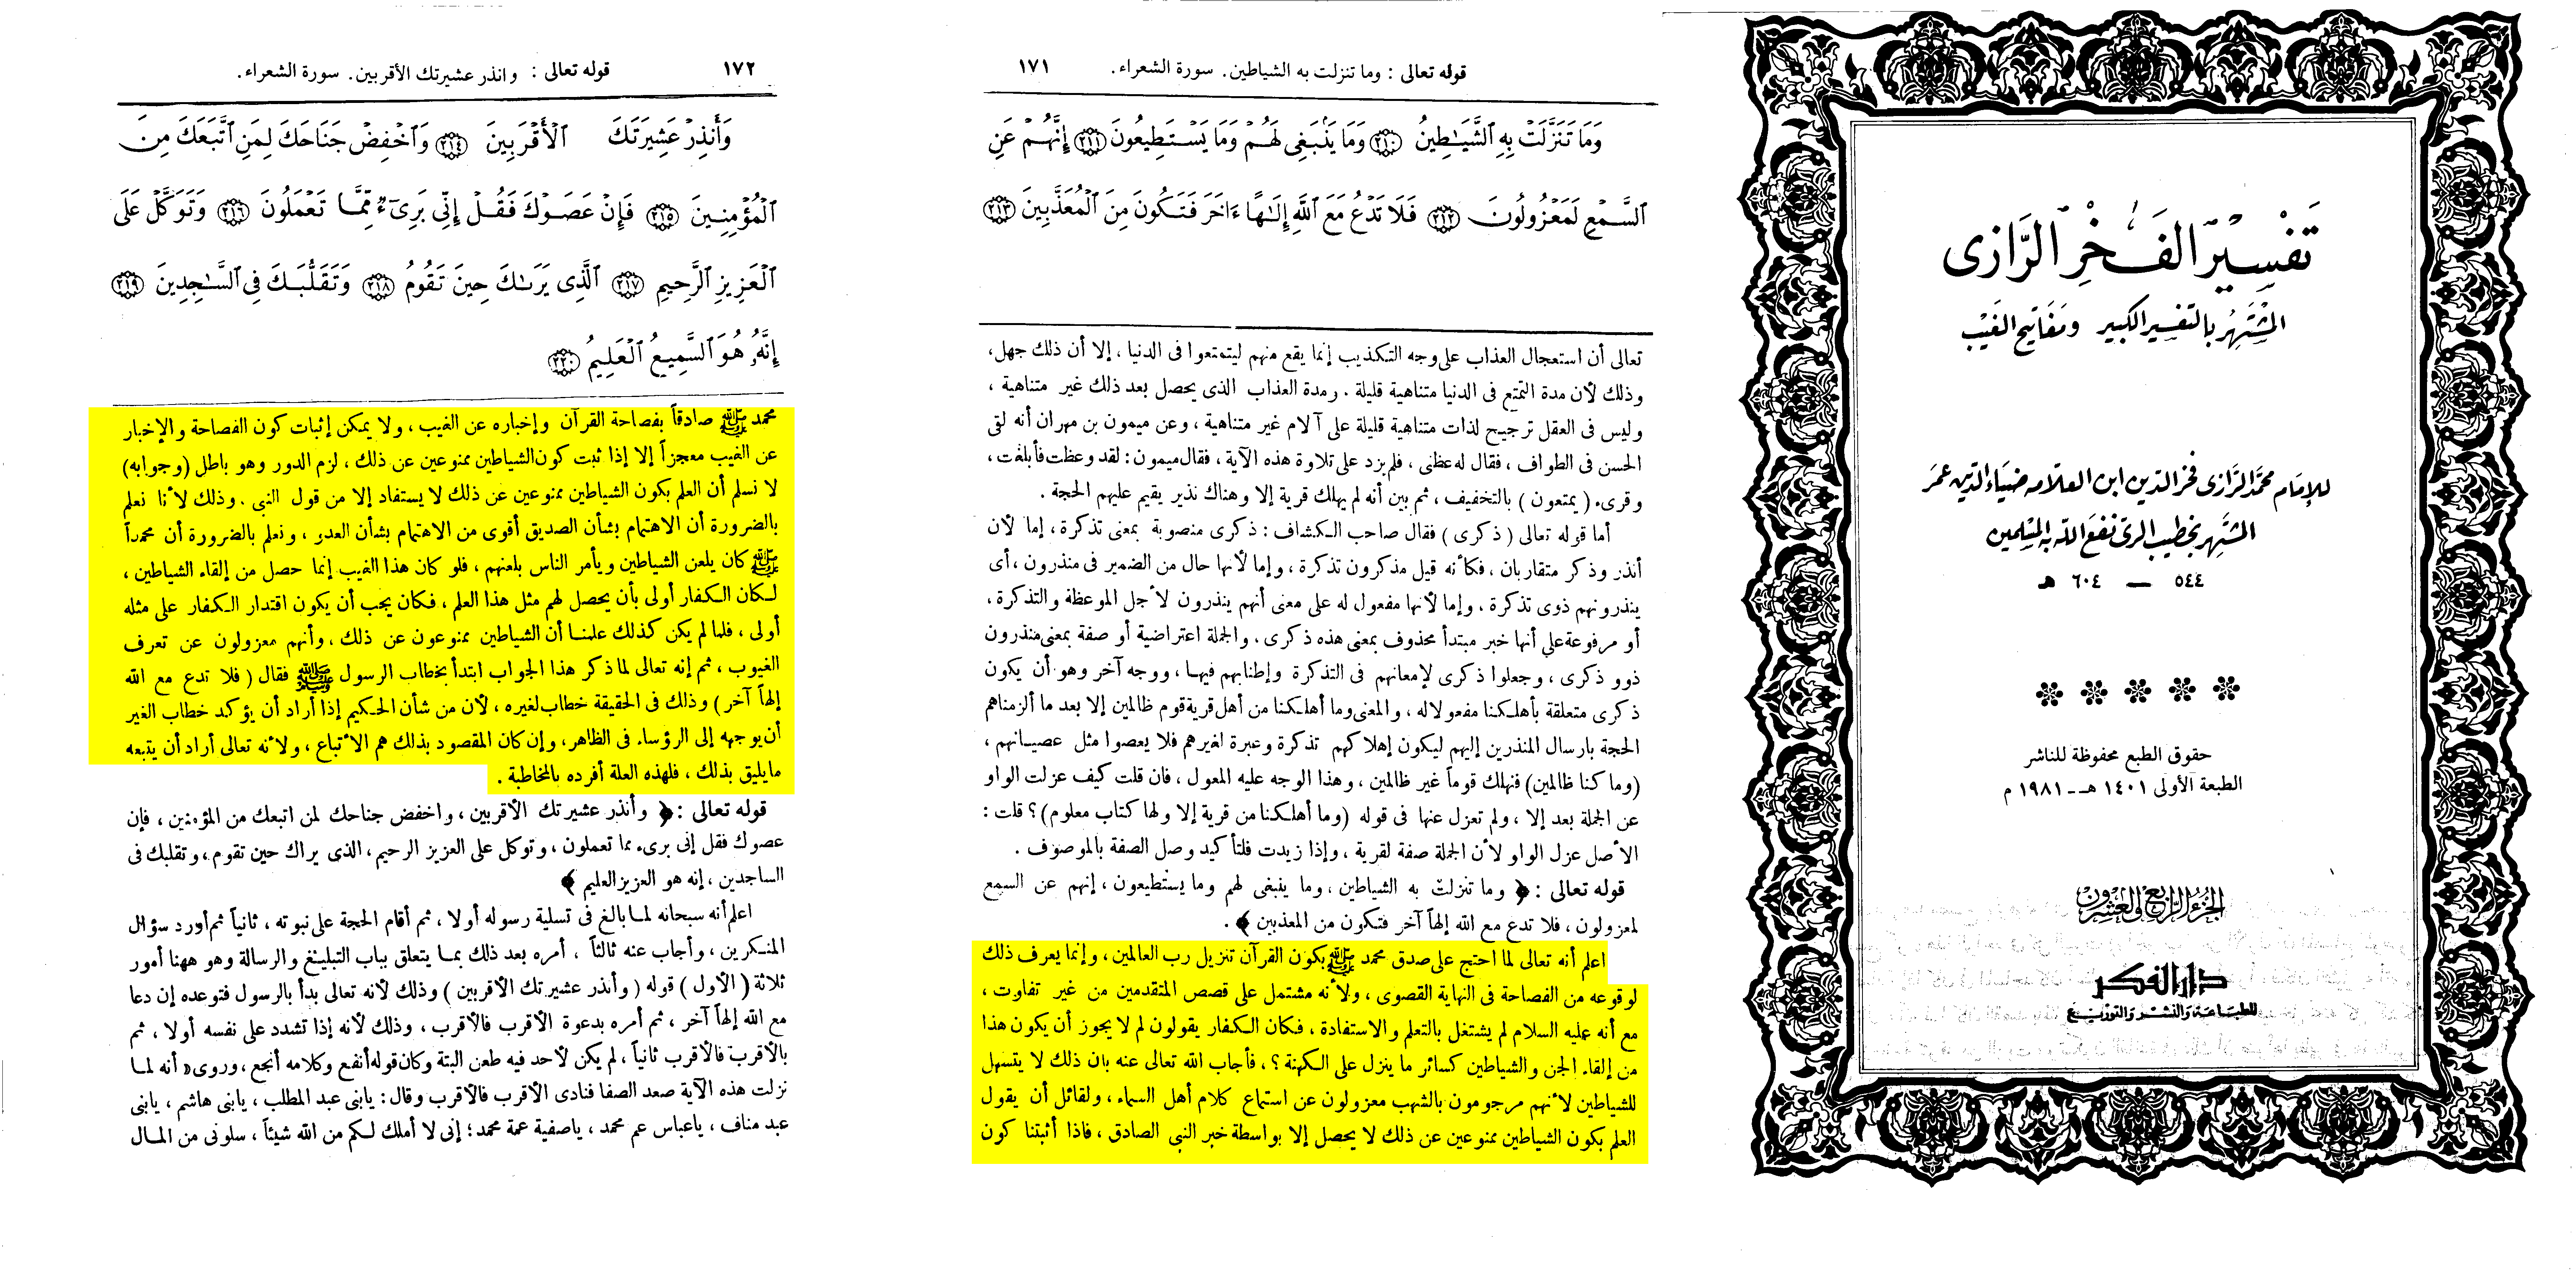 تفسير الفخر الرازى
المشتهر بالتفسير الكبير ومفاتيح الغيب
للإمام محمد الرازى فخر الدين ابن العلامه ضياء الدين عمر
المشتهر بخطيب الرى نفع الله به المسلمين
٥٤٤ — ٦٠٤ هـ
حقوق الطبع محفوظة للناشر
الطبعة الأولى ١٤٠١ هـ - ١٩٨١ م
الجزء الرابع والعشرون
دار الفكر
للطباعة والنشر والتوزيع
قوله تعالى : وما تنزلت به الشياطين. سورة الشعراء. ١٧١
وَمَا تَنَزَّلَتْ بِهِ ٱلشَّيَـٰطِينُ ٢١٠ وَمَا يَنۢبَغِى لَهُمْ وَمَا يَسْتَطِيعُونَ ٢١١ إِنَّهُمْ عَنِ
ٱلسَّمْعِ لَمَعْزُولُونَ ٢١٢ فَلَا تَدْعُ مَعَ ٱللَّهِ إِلَـٰهًا ءَاخَرَ فَتَكُونَ مِنَ ٱلْمُعَذَّبِينَ ٢١٣
تعالى أن استعجال العذاب على وجه التكذيب إنما يقع منهم ليتمتعوا فى الدنيا ، إلا أن ذلك جهل،
وذلك لأن مدة التمتع فى الدنيا متناهية قليلة . ومدة العذاب الذى يحصل بعد ذلك غير متناهية ،
وليس فى العقل ترجيح لذات متناهية قليلة على آلام غير متناهية ، وعن ميمون بن مهران أنه لقى
الحسن فى الطواف ، فقال له عظنى ، فلم يزد على تلاوة هذه الآية ، فقال ميمون : لقد وعظت فأبلغت ،
وقرىء ( يمتعون ) بالتخفيف ، ثم بين أنه لم يهلك قرية إلا وهناك نذير يقيم عليهم الحجة .
أما قوله تعالى ( ذكرى ) فقال صاحب الكشاف : ذكرى منصوبة بمعنى تذكرة ، إما لأن
أنذر وذكر متقاربان ، فكأنه قيل مذكرون تذكرة ، وإما لأنها حال من الضمير فى منذرون ، أى
ينذرونهم ذوى تذكرة . وإما لأنها مفعول له على معنى أنهم ينذرون لأجل الموعظة والتذكرة ،
أو مرفوعة على أنها خبر مبتدأ محذوف بمعنى هذه ذكرى . والجملة اعتراضية أو صفة بمعنى منذرون
ذوو ذكرى ، وجعلوا ذكرى لإمعانهم فى التذكرة وإطنابهم فيها ، ووجه آخر وهو أن يكون
ذكرى متعلقة بأهلكنا مفعولا له ، والمعنى وما أهلكنا من أهل قرية قوم ظالمين إلا بعد ما ألزمناهم
الحجة بارسال المنذرين إليهم ليكون إهلاكهم تذكرة وعبرة لغيرهم فلا يعصوا مثل عصيانهم ،
(وما كنا ظالمين) فنهلك قوماً غير ظالمين ، وهذا الوجه عليه المعول ، فان قلت كيف عزلت الواو
عن الجملة بعد إلا ، ولم تعزل عنها فى قوله (وما أهلكنا من قرية إلا ولها كتاب معلوم) ؟ قلت :
الأصل عزل الواو لأن الجملة صفة لقرية ، وإذا زيدت فلتأكيد وصل الصفة بالموصوف .
قوله تعالى : ﴿ وما تنزلت به الشياطين ، وما ينبغى لهم وما يستطيعون ، إنهم عن السمع
لمعزولون ، فلا تدع مع الله إلهاً آخر فتكون من المعذبين ﴾ .
اعلم أنه تعالى لما احتج على صدق محمد ﷺ بكون القرآن تنزيل رب العالمين ، وإنما يعرف ذلك
لوقوعه من الفصاحة فى النهاية القصوى ، ولأنه مشتمل على قصص المتقدمين من غير تفاوت ،
مع أنه عليه السلام لم يشتغل بالتعلم والاستفادة ، فكان الكفار يقولون لم لا يجوز أن يكون هذا
من إلقاء الجن والشياطين كسائر ما ينزل على الكهنة ؟ ، فأجاب الله تعالى عنه بان ذلك لا يتسهل
للشياطين لأنهم مرجومون بالشهب معزولون عن استماع كلام أهل السماء ، ولقائل أن يقول
العلم بكون الشياطين ممنوعين عن ذلك لا يحصل إلا بواسطة خبر النبى الصادق ، فاذا أثبتنا كون
١٧٢ قوله تعالى : وانذر عشيرتك الأقربين. سورة الشعراء.
وَأَنذِرْ عَشِيرَتَكَ ٱلْأَقْرَبِينَ ٢١٤ وَٱخْفِضْ جَنَاحَكَ لِمَنِ ٱتَّبَعَكَ مِنَ
ٱلْمُؤْمِنِينَ ٢١٥ فَإِنْ عَصَوْكَ فَقُلْ إِنِّى بَرِىٓءٌ مِّمَّا تَعْمَلُونَ ٢١٦ وَتَوَكَّلْ عَلَى
ٱلْعَزِيزِ ٱلرَّحِيمِ ٢١٧ ٱلَّذِى يَرَىٰكَ حِينَ تَقُومُ ٢١٨ وَتَقَلُّبَكَ فِى ٱلسَّـٰجِدِينَ ٢١٩
إِنَّهُۥ هُوَ ٱلسَّمِيعُ ٱلْعَلِيمُ ٢٢٠
محمد ﷺ صادقاً بفصاحة القرآن وإخباره عن الغيب ، ولا يمكن إثبات كون الفصاحة والإخبار
عن الغيب معجزاً إلا إذا ثبت كون الشياطين ممنوعين عن ذلك ، لزم الدور وهو باطل (وجوابه)
لا نسلم أن العلم بكون الشياطين ممنوعين عن ذلك لا يستفاد إلا من قول النبى . وذلك لأنا نعلم
بالضرورة أن الاهتمام بشأن الصديق أقوى من الاهتمام بشأن العدو ، ونعلم بالضرورة أن محمداً
ﷺ كان يلعن الشياطين ويأمر الناس بلعنهم ، فلو كان هذا الغيب إنما حصل من إلقاء الشياطين ،
لكان الكفار أولى بأن يحصل لهم مثل هذا العلم ، فكان يجب أن يكون اقتدار الكفار على مثله
أولى ، فلما لم يكن كذلك علمنا أن الشياطين ممنوعون عن ذلك ، وأنهم معزولون عن تعرف
الغيوب ، ثم إنه تعالى لما ذكر هذا الجواب ابتدأ بخطاب الرسول ﷺ فقال ( فلا تدع مع الله
إلهاً آخر ) وذلك فى الحقيقة خطاب لغيره ، لأن من شأن الحكيم إذا أراد أن يؤكد خطاب الغير
أن يوجهه إلى الرؤساء فى الظاهر ، وإن كان المقصود بذلك هم الأتباع ، ولأنه تعالى أراد أن يتبعه
مايليق بذلك ، فلهذه العلة أفرده بالمخاطبة .
قوله تعالى : ﴿ وأنذر عشيرتك الأقربين ، واخفض جناحك لمن اتبعك من المؤمنين ، فإن
عصوك فقل إنى برىء مما تعملون ، وتوكل على العزيز الرحيم ، الذى يراك حين تقوم ، وتقلبك فى
الساجدين ، إنه هو العزيز العليم ﴾
اعلم أنه سبحانه لما بالغ فى تسلية رسوله أولا ، ثم أقام الحجة على نبوته ، ثانياً ثم أورد سؤال
المنكرين ، وأجاب عنه ثالثاً ، أمره بعد ذلك بما يتعلق بباب التبليغ والرسالة وهو ههنا أمور
ثلاثة ( الأول ) قوله ( وأنذر عشيرتك الأقربين ) وذلك لأنه تعالى بدأ بالرسول فتوعده إن دعا
مع الله إلهاً آخر ، ثم أمره بدعوة الأقرب فالأقرب ، وذلك لأنه إذا تشدد على نفسه أولا ، ثم
بالأقرب فالأقرب ثانياً ، لم يكن لأحد فيه طعن البتة وكان قوله أنفع وكلامه أنجع ، وروى « أنه لما
نزلت هذه الآية صعد الصفا فنادى الأقرب فالأقرب وقال : يابنى عبد المطلب ، يابنى هاشم ، يابنى
عبد مناف ، ياعباس عم محمد ، ياصفية عمة محمد ؛ إنى لا أملك لكم من الله شيئاً ، سلونى من المال